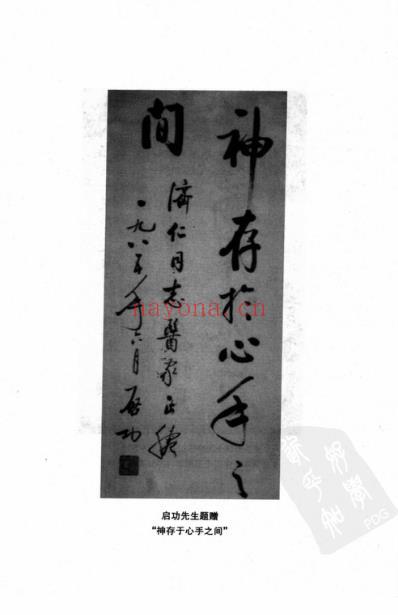 神存於心手之
間
濟仁同志醫家正腕
一九八五年六月 啓功
nayona.cn
启功先生题赠
“神存于心手之间”
PDG